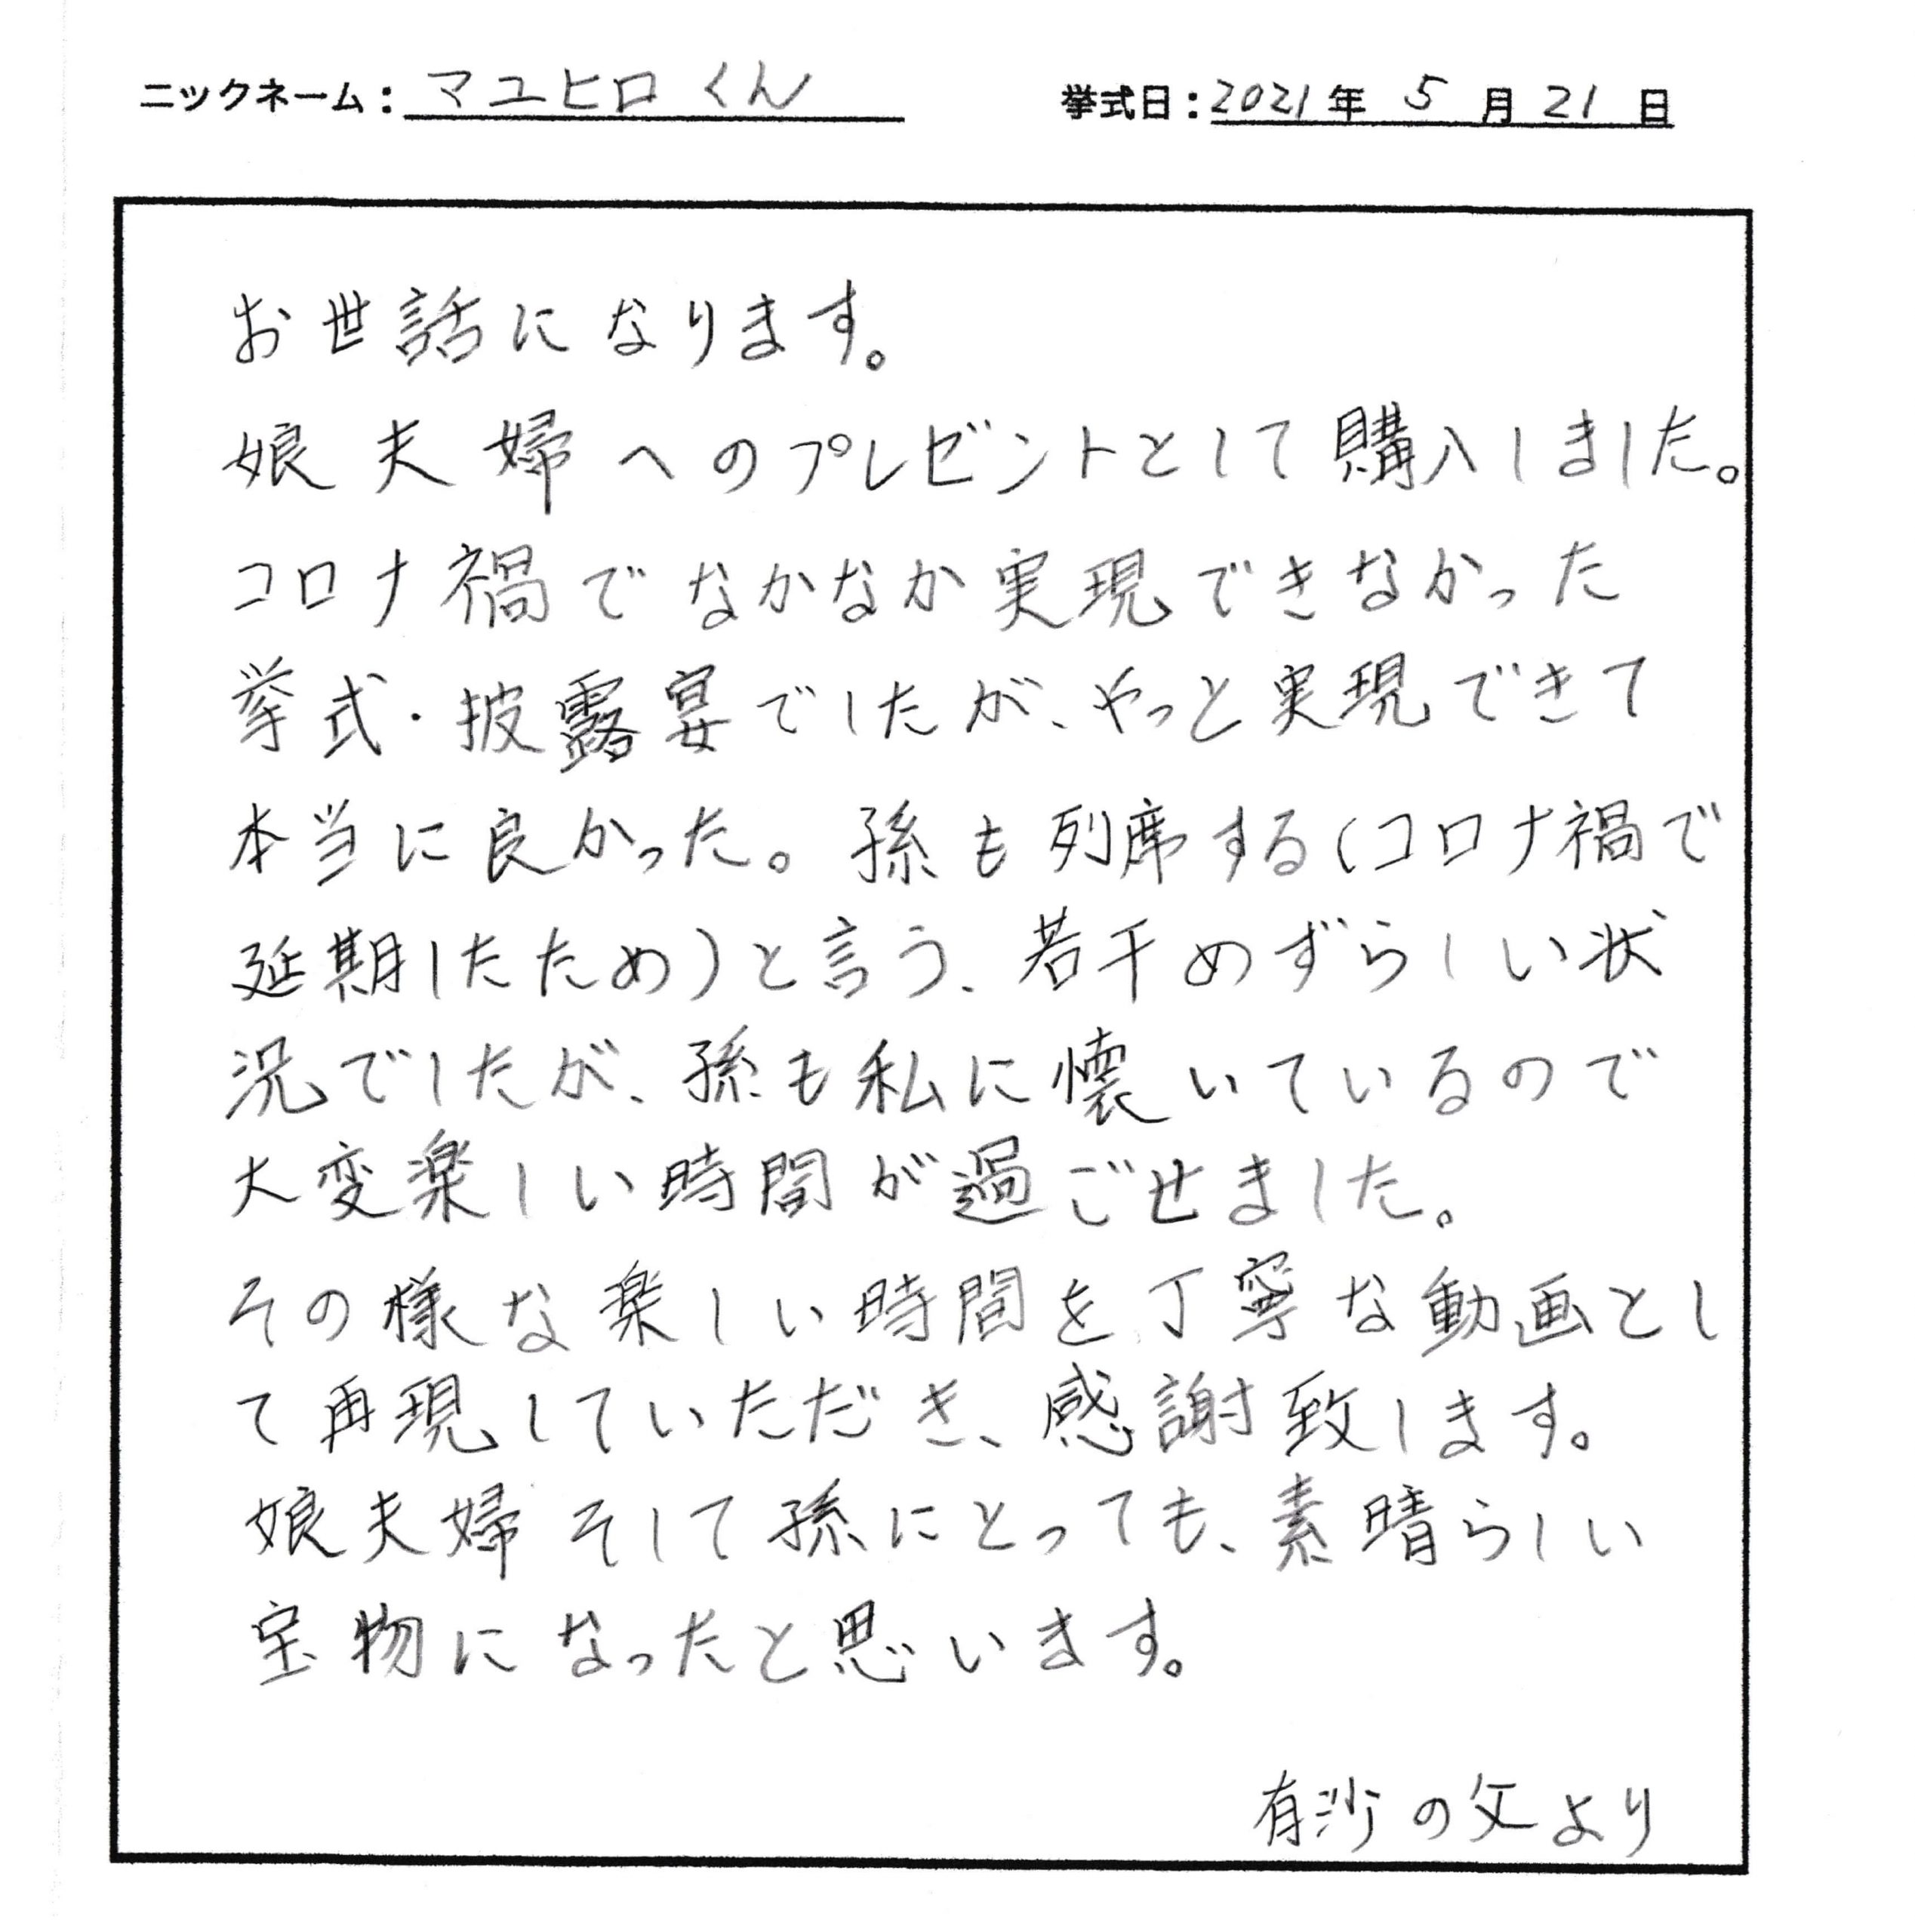 ニックネーム：マユヒロくん 挙式日：2021年 5月 21日
お世話になります。
娘夫婦へのプレゼントとして購入しました。
コロナ禍でなかなか実現できなかった
挙式・披露宴でしたが、やっと実現できて
本当に良かった。孫も列席する(コロナ禍で
延期したため)と言う、若干めずらしい状
況でしたが、孫も私に懐いているので
大変楽しい時間が過ごせました。
その様な楽しい時間を丁寧な動画とし
て再現していただき、感謝致します。
娘夫婦そして孫にとっても、素晴らしい
宝物になったと思います。
有沙の父より